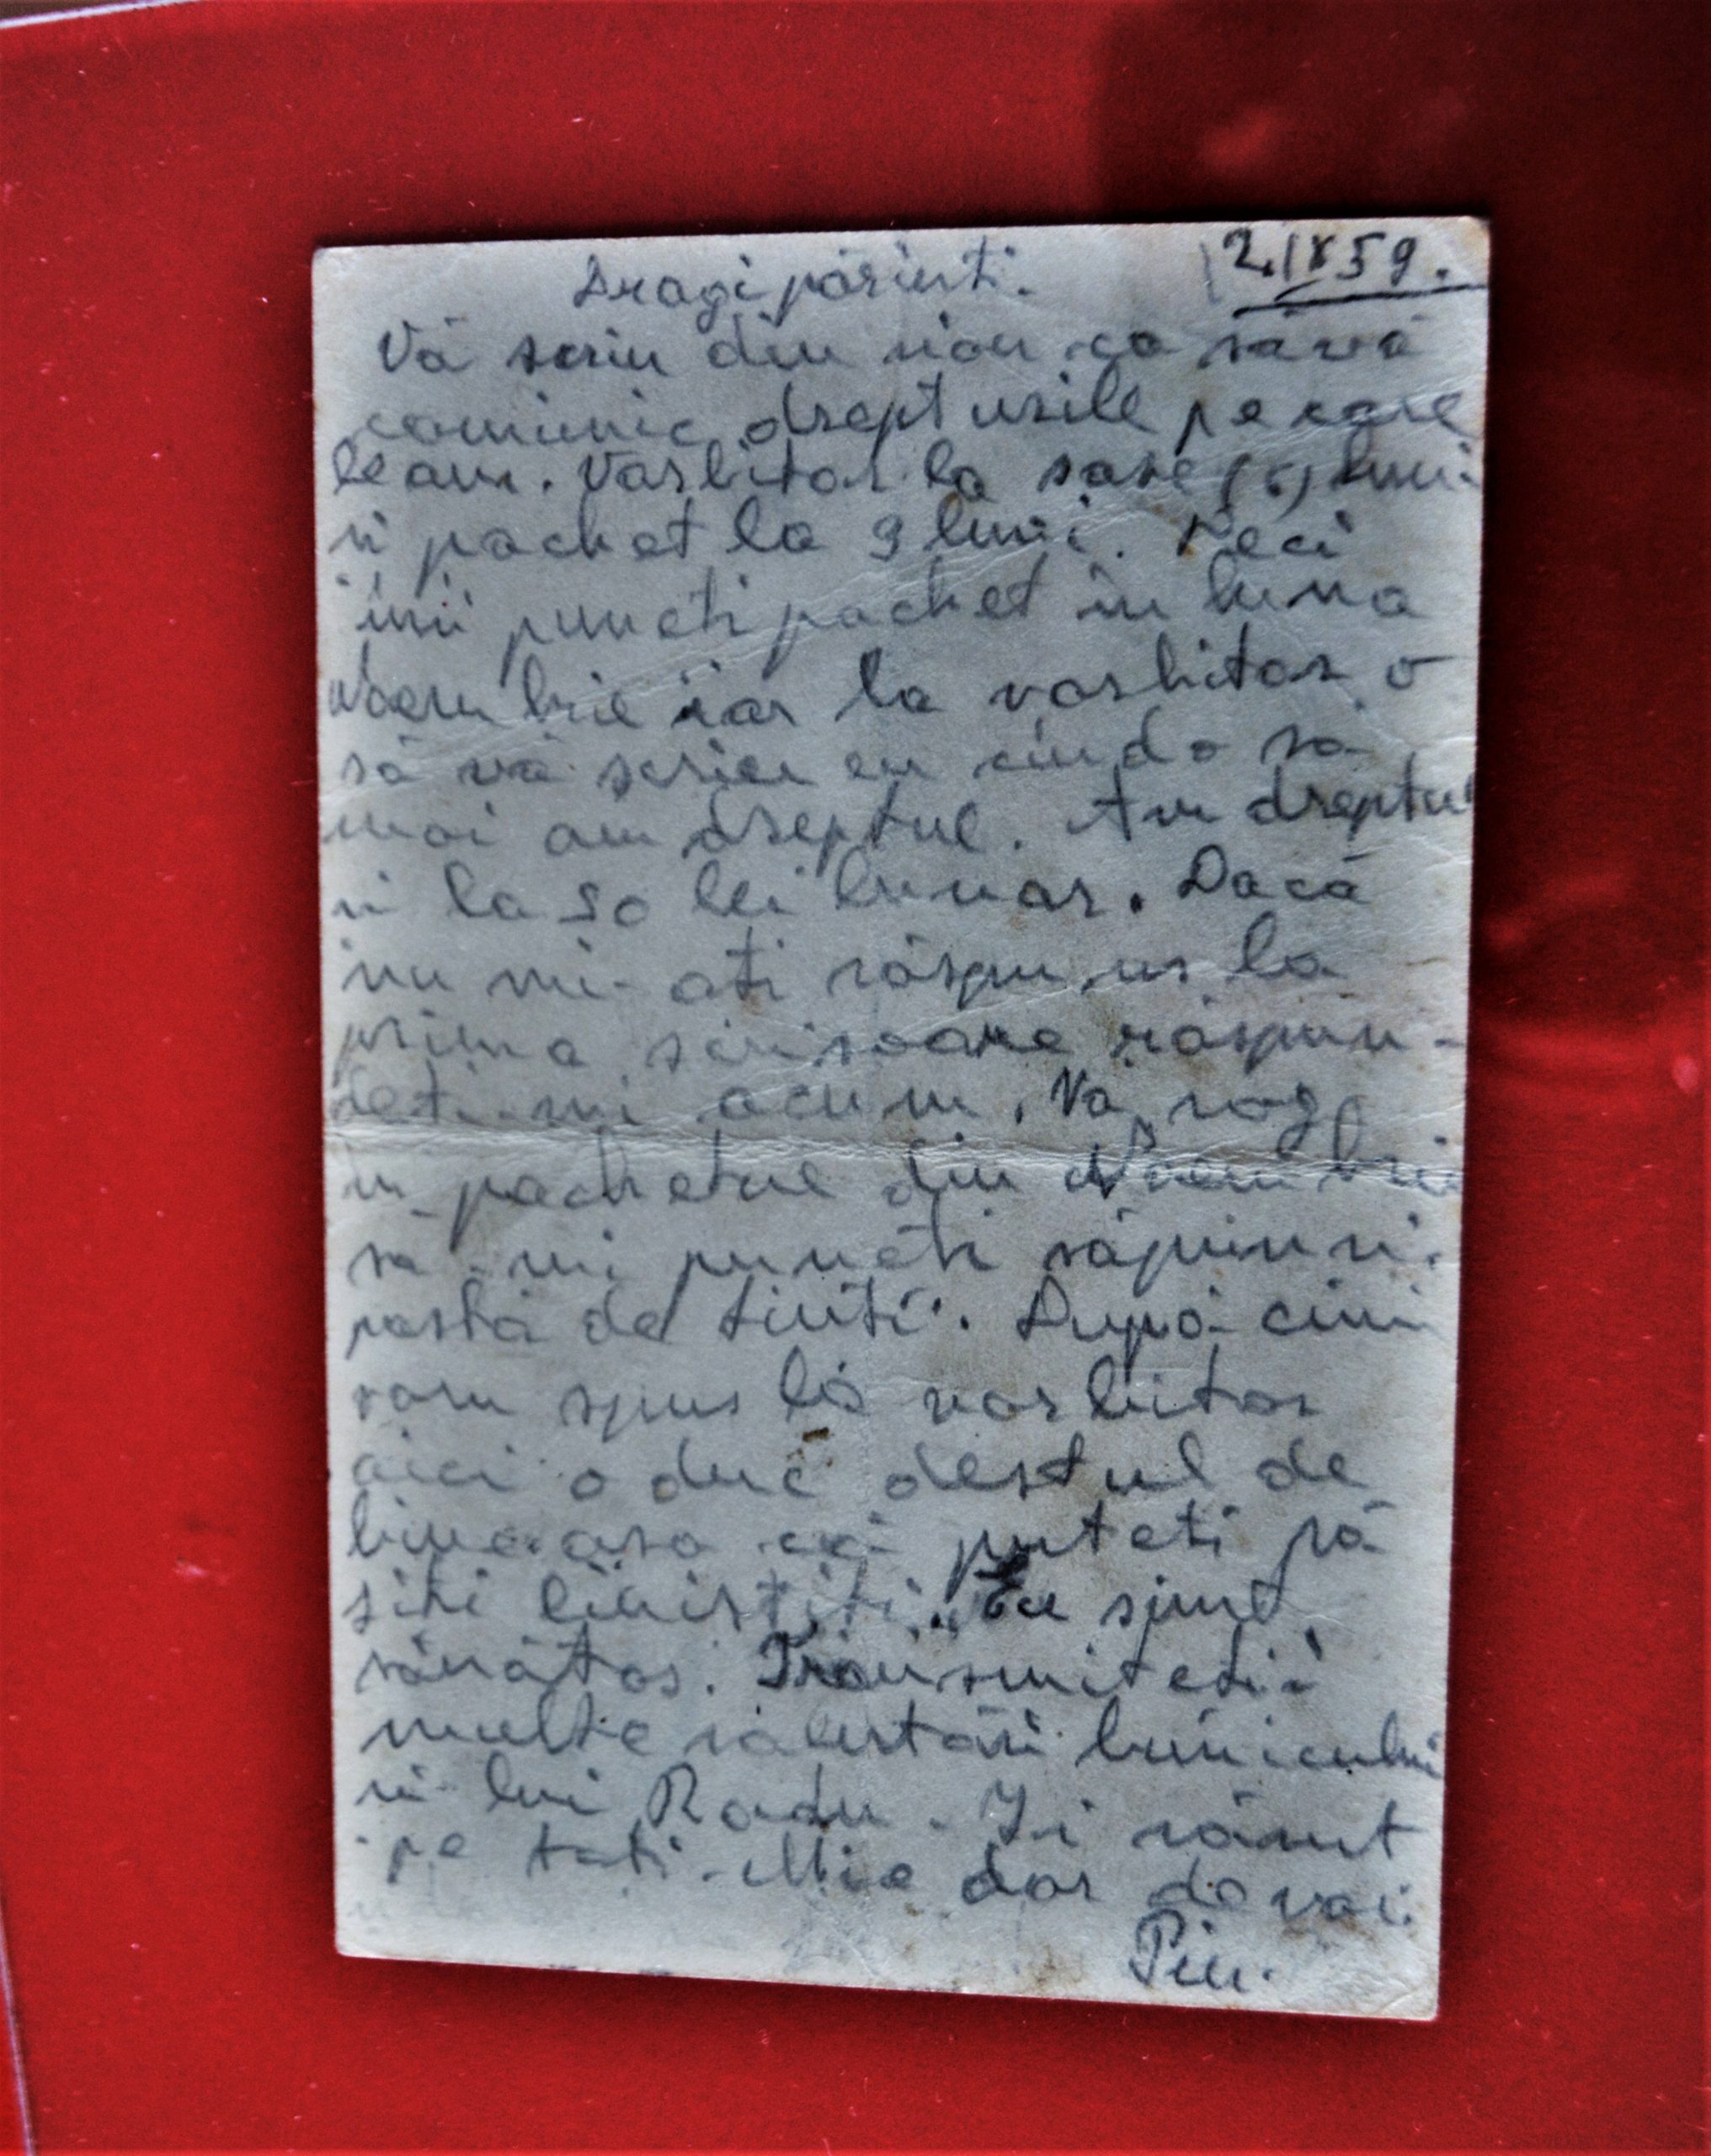 2.IX59.
Dragi părinti.
Vă scriu din nou ca săvă
comunic drepturile pe care
leam. Vorbitor la sase (6) luni
si pachet la 9 luni. Deci
imi puneti pachet în luna
Noembrie iar la vorbitor o
să vă scriu eu cind o să
mai am dreptul. Am dreptul
si la 50 lei lunar. Dacă
nu mi-ati răspuns la
prima scrisoare răspun-
deti-mi acum. Vă rog
in pachetul din Noembrie
să-mi puneti săpun si
pastă de dinti. După cum
vam spus la vorbitor
aici o duc destul de
bine asa că puteti să
fiti linistiti. Eu sunt
sănătos. Transmitetii
multe salutări bunicului
si lui Radu. Ii sărut
pe toti. Mie dor de voi.
Piu.